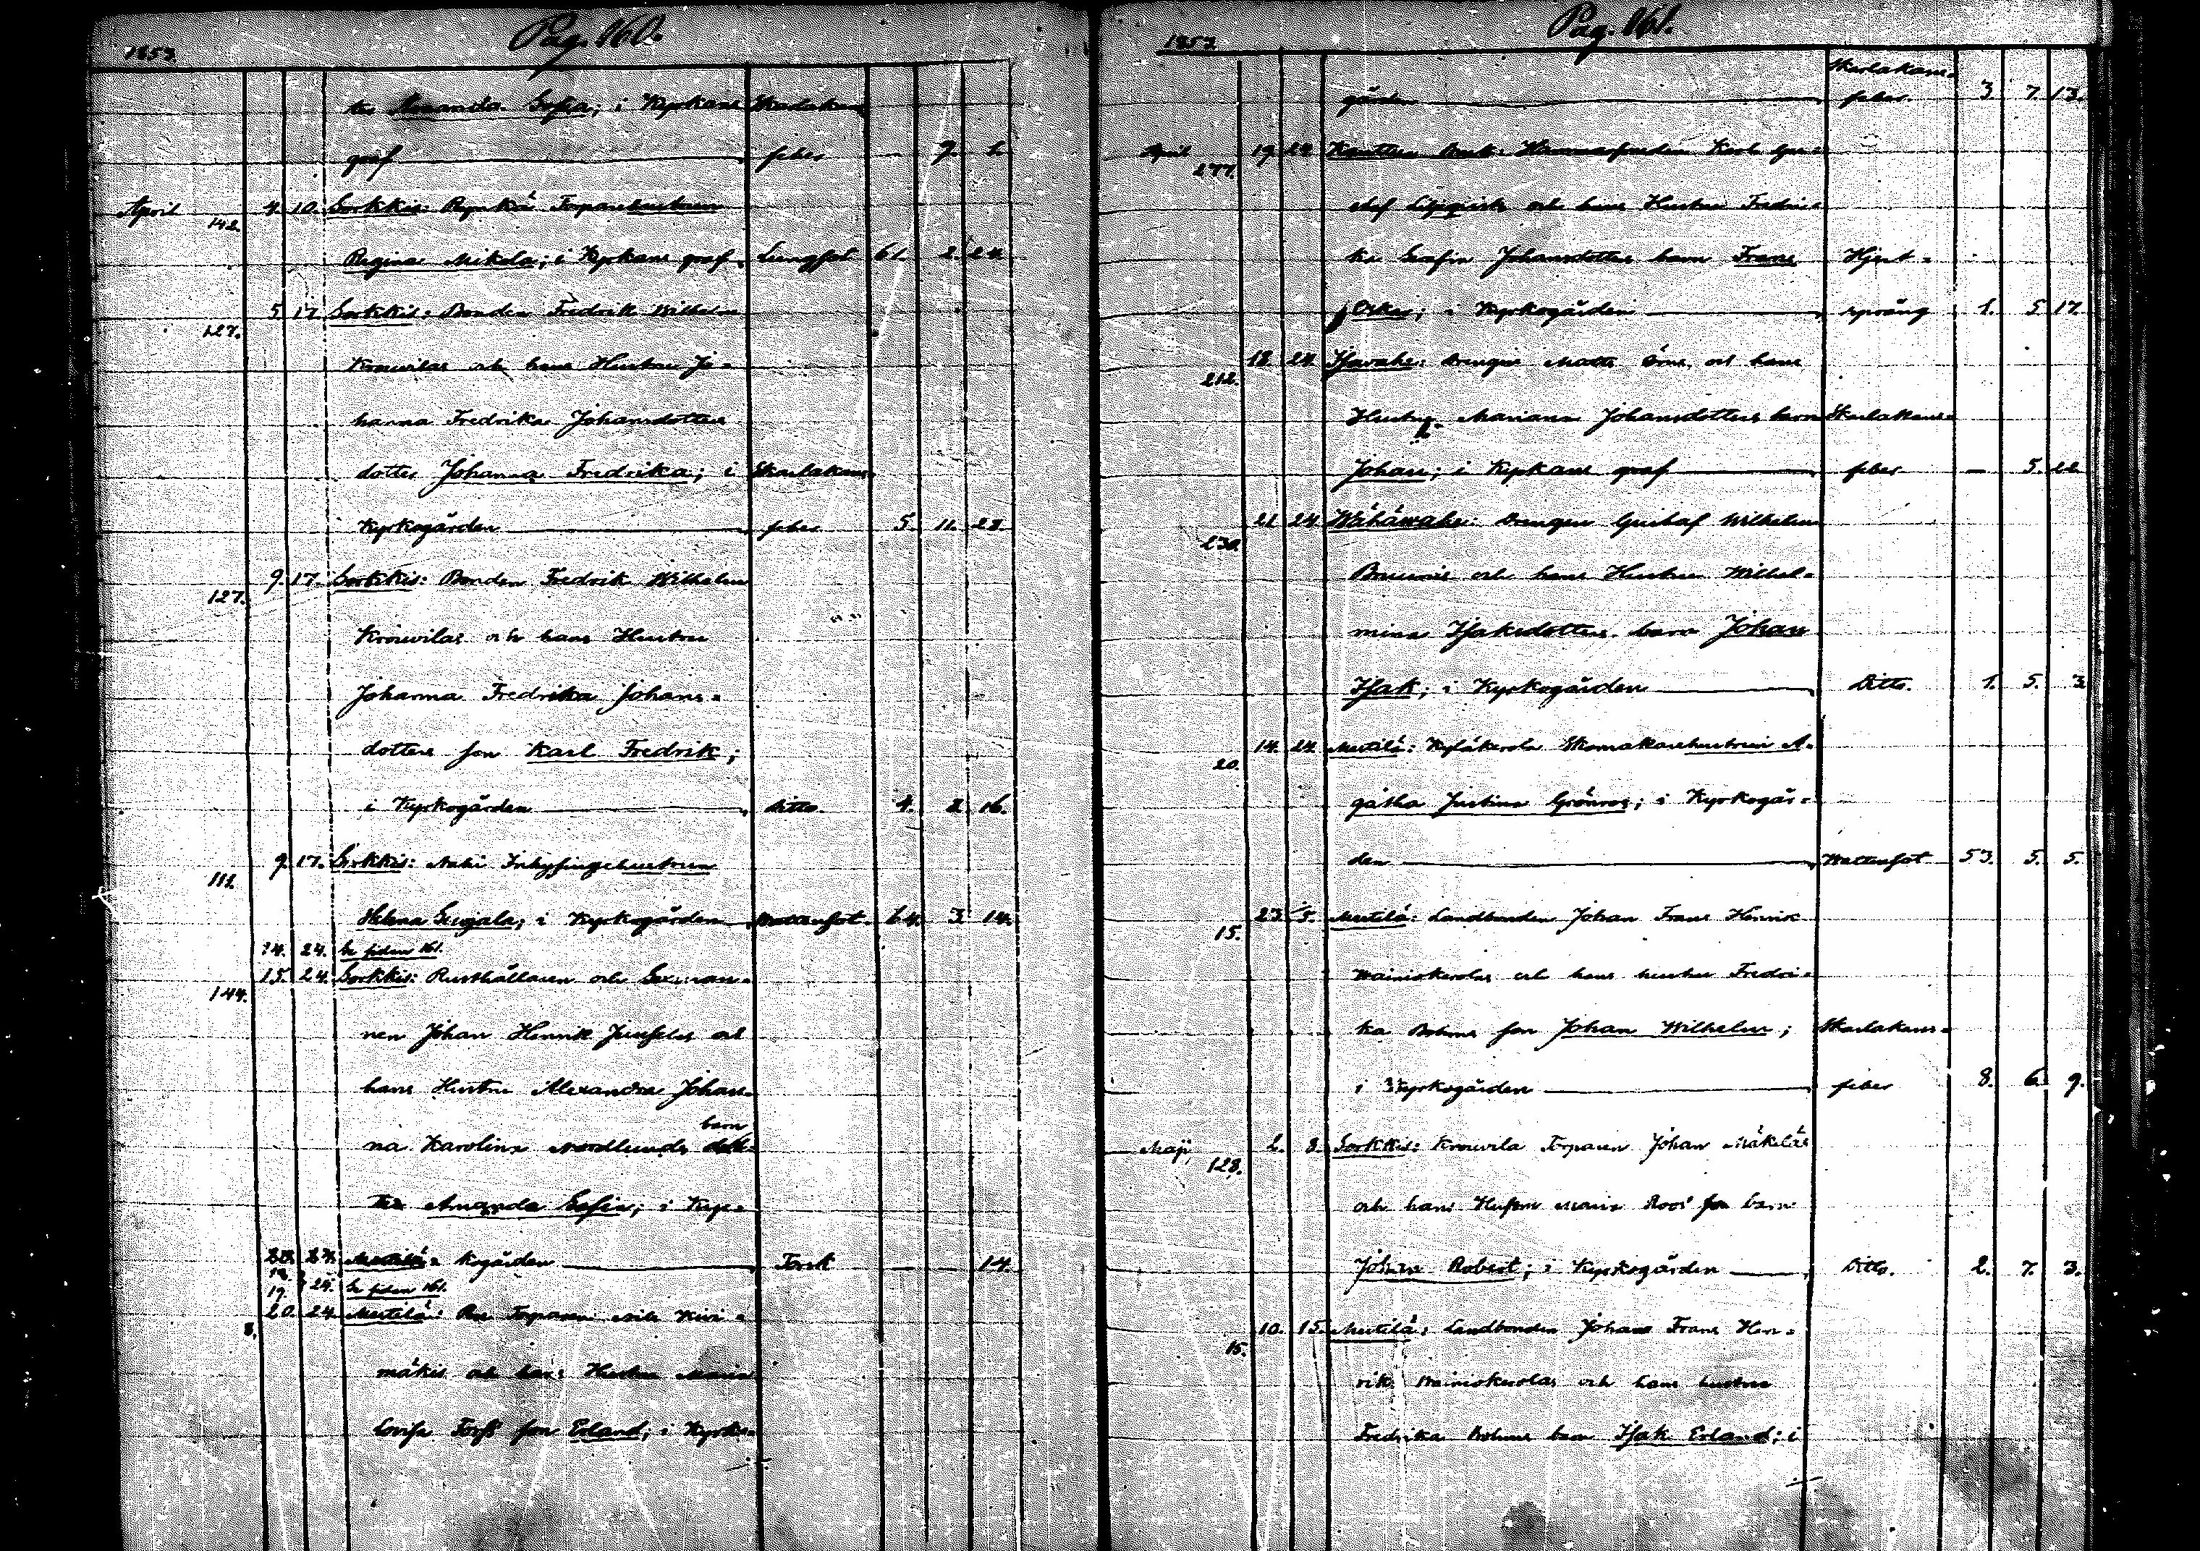 Pag. 160.
1853.
ter Amanda Sofia; i Kyrkans Skarlakans
graf feber 9. 2.
April 142. 4. 10. Sorkkis: Torparehustrun
Regina Mikola; i Kyrkans graf Lungsot 61. 2. 24.
127. 5. 17. Sorkkis: Bonden Fredrik Wilhelm
Krouvilas och hans Hustru Jo=
hanna Fredrika Johansdotters
dotter Johanna Fredrika; i Skarlakans
Kyrkogården feber 5. 11. 28.
127. 9. 17. Sorkkis: Bonden Fredrik Wilhelm
Krouvilas och hans Hustru
Johanna Fredrika Johans=
dotters son Karl Fredrik;
i Kyrkogården Ditto. 4. 2. 16.
111. 9. 17. Sorkkis: Inhysingehustrun
Helena; i Kyrkogården Wattusot. 64. 3. 14.
14. 24. Se sidan 161.
144. 15. 24. Sorkkis: Rusthållaren och Sexman=
nen Johan Henrik och
hans Hustru Alexandra Johan=
na Karolina Nordlunds barn
Amanda Sofia; i Kyr=
kogården Torsk 14.
19. 24. Se sidan 161.
8. 20. 24. Mertilä: Torparen Kivi=
mäkis och hans Hustru Maria
Lovisa son Erland; i Kyrko=
Pag. 161.
1853.
Skarlakans=
gården feber. 3. 7. 13.
April 277. 19. 24. Bruk: Hammarsmeden Karl Gu=
staf och hans Hustru Fredri=
ka Serafia Johansdotters barn Frans Hjert=
Oskar; i Kyrkogården språng 1. 5. 17.
212. 18. 24. Drengen Matts och hans
Hustru Mariana Johansdotters barn Skarlakans=
Johan; i Kyrkans graf feber — 5. 22.
230. 21. 24. Drengen Gustaf Wilhelm
och hans Hustru Wilhel=
mina Isaksdotters barn Johan
Isak; i Kyrkogården Ditto. 1. 5. 3.
20. 14. 24. Mertilä: Kyläkerola Skomakarehustrun A=
gatha Justina Grönroos; i Kyrkogår=
den Wattusot 53. 5. 5.
15. 23. 5. Mertilä: Landbonden Johan Frans Henrik
Wainiokerolas och hans hustru Fredri=
ka Bohms son Johan Wilhelm; Skarlakans=
i Kyrkogården feber 8. 6. 9.
Maji 128. 2. 8. Sorkkis: Krouvila Torparen Johan Mäkeläs
och hans Hustru Maria Roos barn
Johan Robert; i Kyrkogården Ditto. 2. 7. 3.
15. 10. 15. Mertilä: Landbonden Johan Frans Hen=
rik Wainiokerolas och hans hustru
Fredrika Bohms barn Isak Erland; i